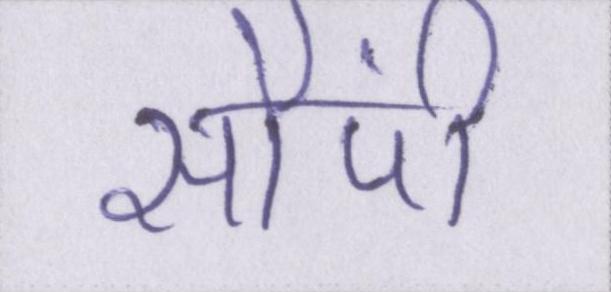 सौंपी